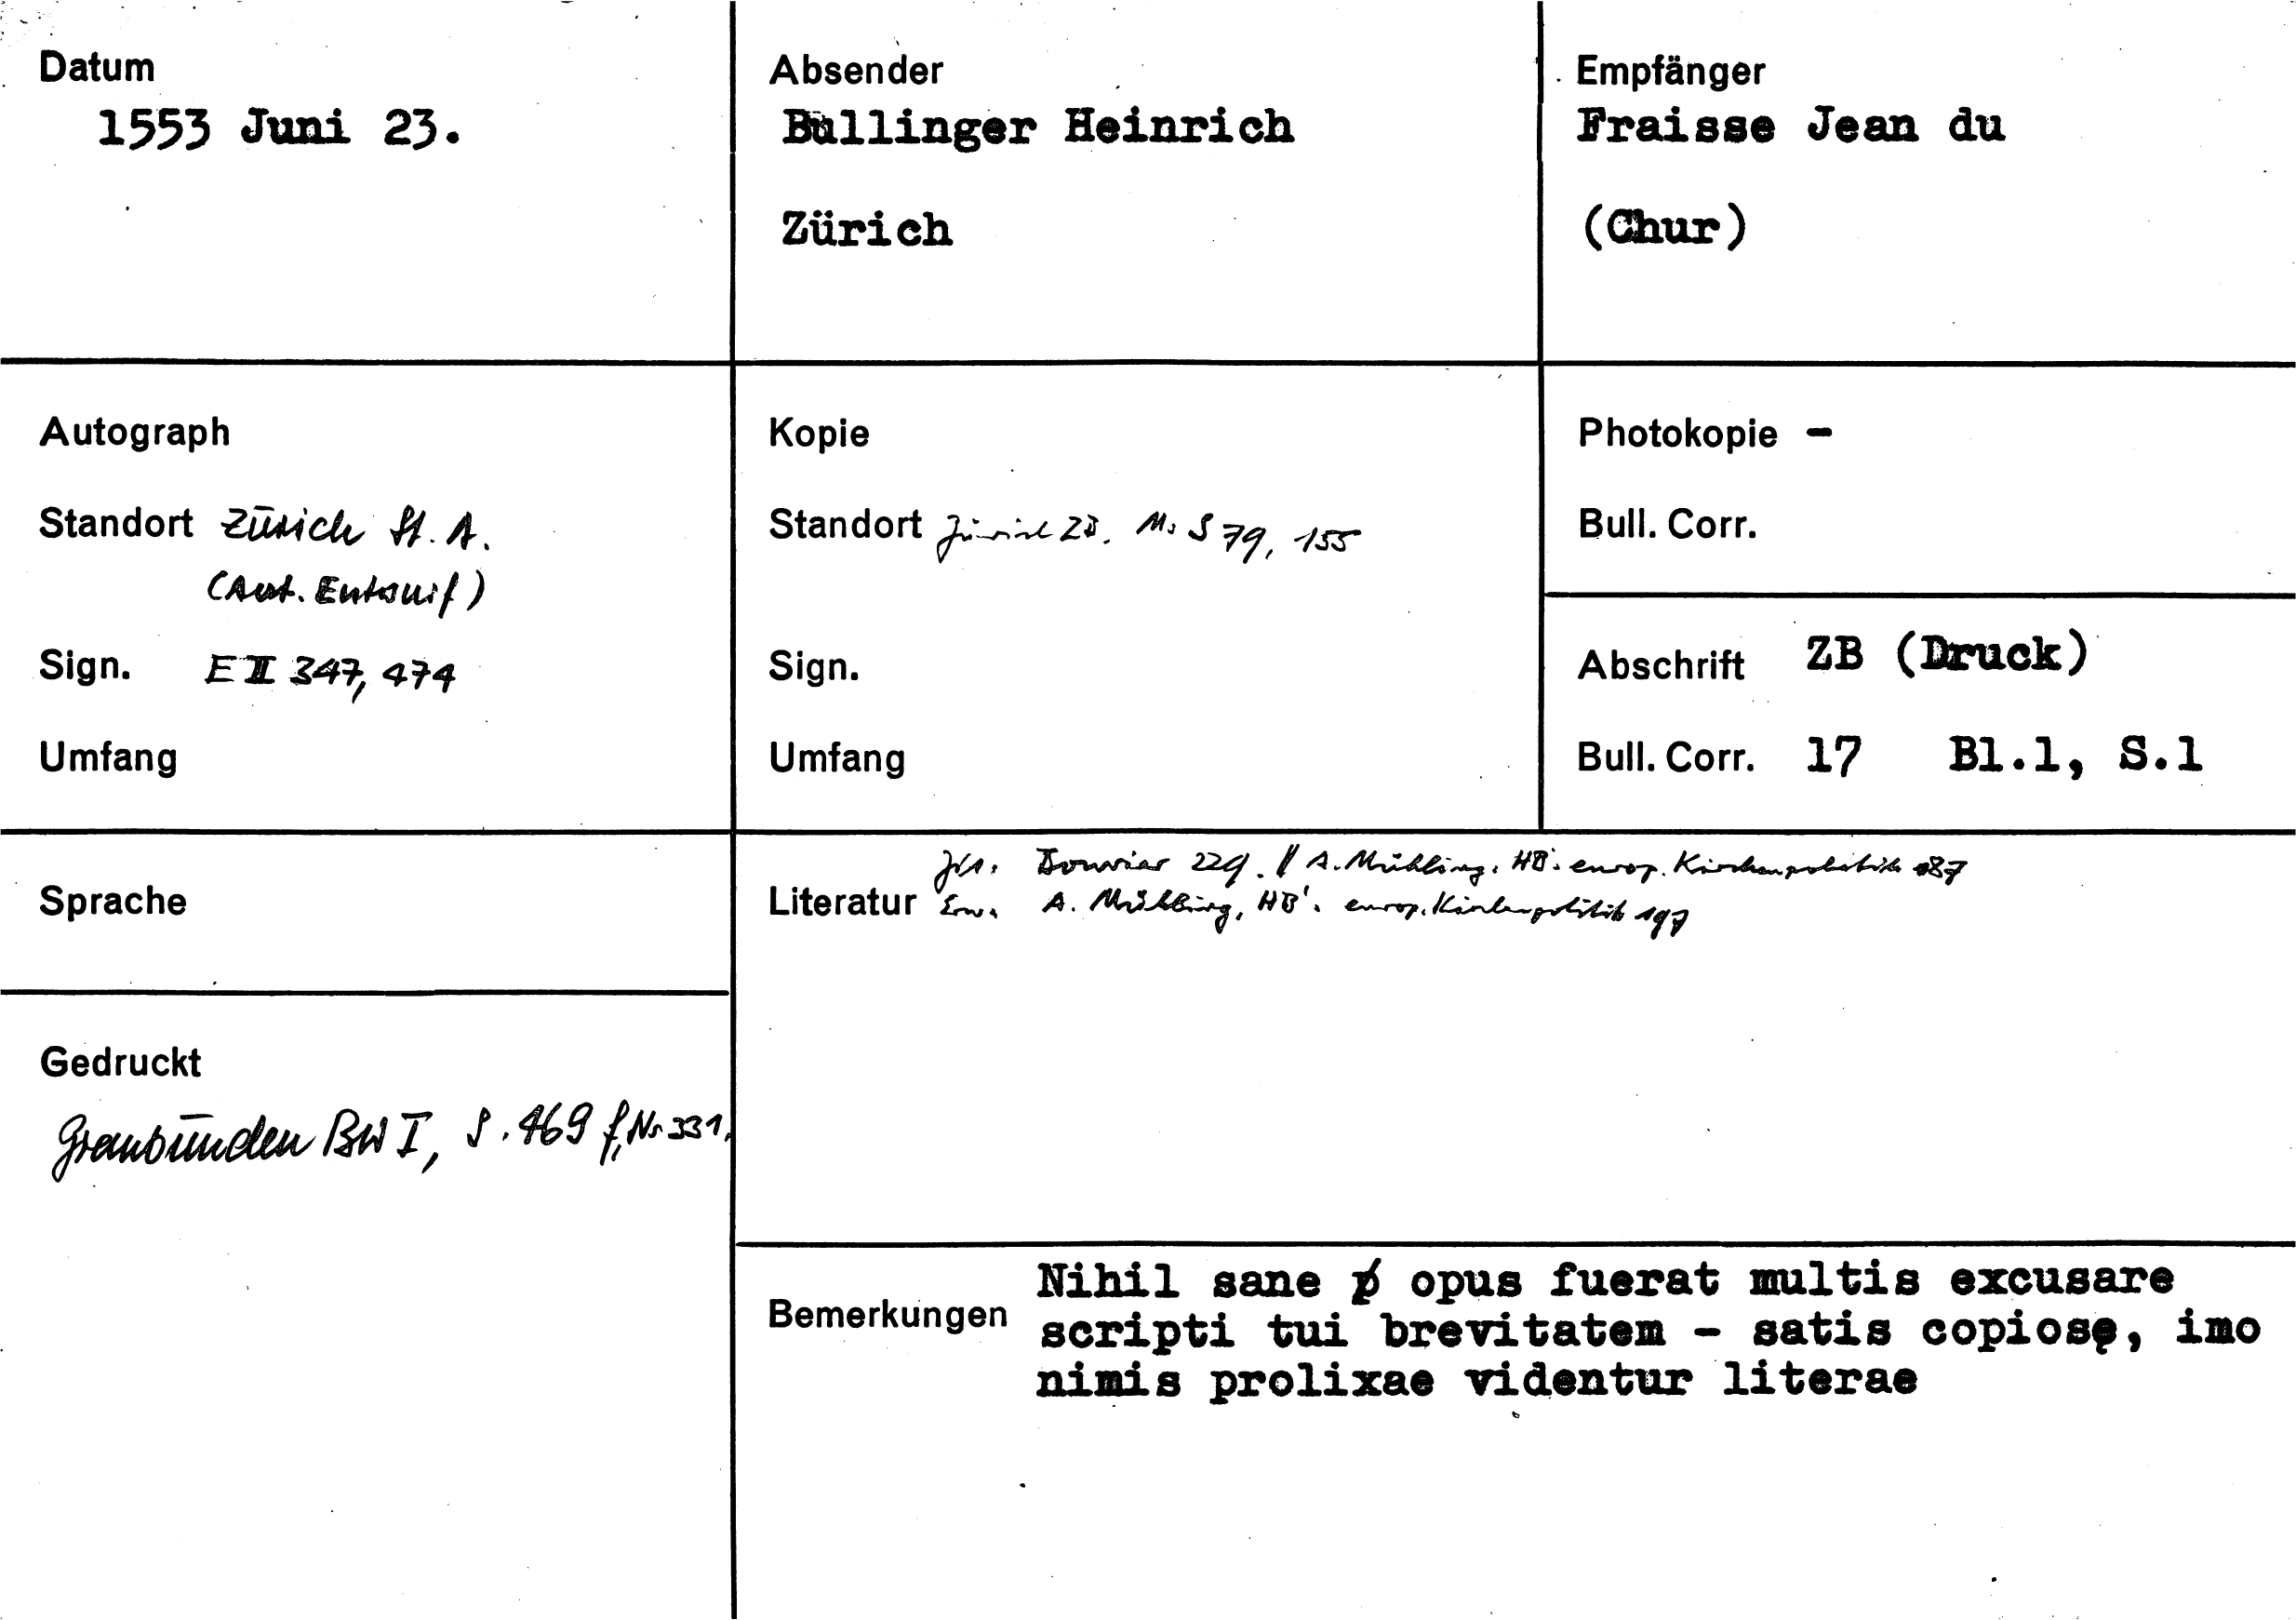 Datum
1553 Juni 23.
Absender
Bullinger Heinrich
Zürich
Empfänger
Fraisse Jean du
(Chur)
Autograph
Standort Zürich St. A.
(Aut. Entwurf)
Sign. E II 347, 474
Umfang
Kopie
Standort Zürich ZB. Ms S 79, 155
Sign.
Umfang
Photokopie -
Bull. Corr.
Abschrift ZB (Druck)
Bull. Corr. 17 Bl.1, S.1
Sprache
Gedruckt
Graubünden BW I, S. 469 f, Nr 331.
Bouvier 229. // A. Mühling, HB's europ. Kirchenpolitik 187
Literatur Erw. A. Mühling, HB's europ. Kirchenpolitik 197
Bemerkungen
Nihil sane opus fuerat multis excusare
scripti tui brevitatem - satis copiosę, imo
nimis prolixae videntur literae